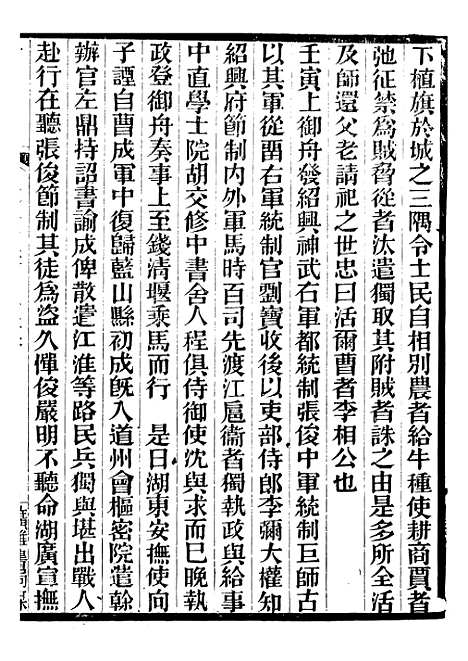 下植旗於城之三隅令士民自相別農者給牛種使耕商賈者
弛征禁為賊脅從者汰遣獨取其附賊者誅之由是多所全活
及師還父老請祀之世忠曰活爾曹者李相公也
壬寅上御舟發紹興神武右軍都統制張俊中軍統制巨師古
以其軍從酉右軍統制官劉寶收後以吏部侍郎李彌大權知
紹興府節制內外軍馬時百司先渡江扈衞者獨執政與給事
中直學士院胡交修中書舍人程俱侍御使沈與求而巳晚執
政登御舟奏事上至錢清堰乘馬而行　是日湖東安撫使向
子諲自曹成軍中復歸藍山縣初成旣入道州會樞密院遣幹
辦官左鼎持詔書諭成俾散遣江淮等路民兵獨與堪出戰人
赴行在聽張俊節制其徒為盜久憚俊嚴明不聽命湖廣宣撫